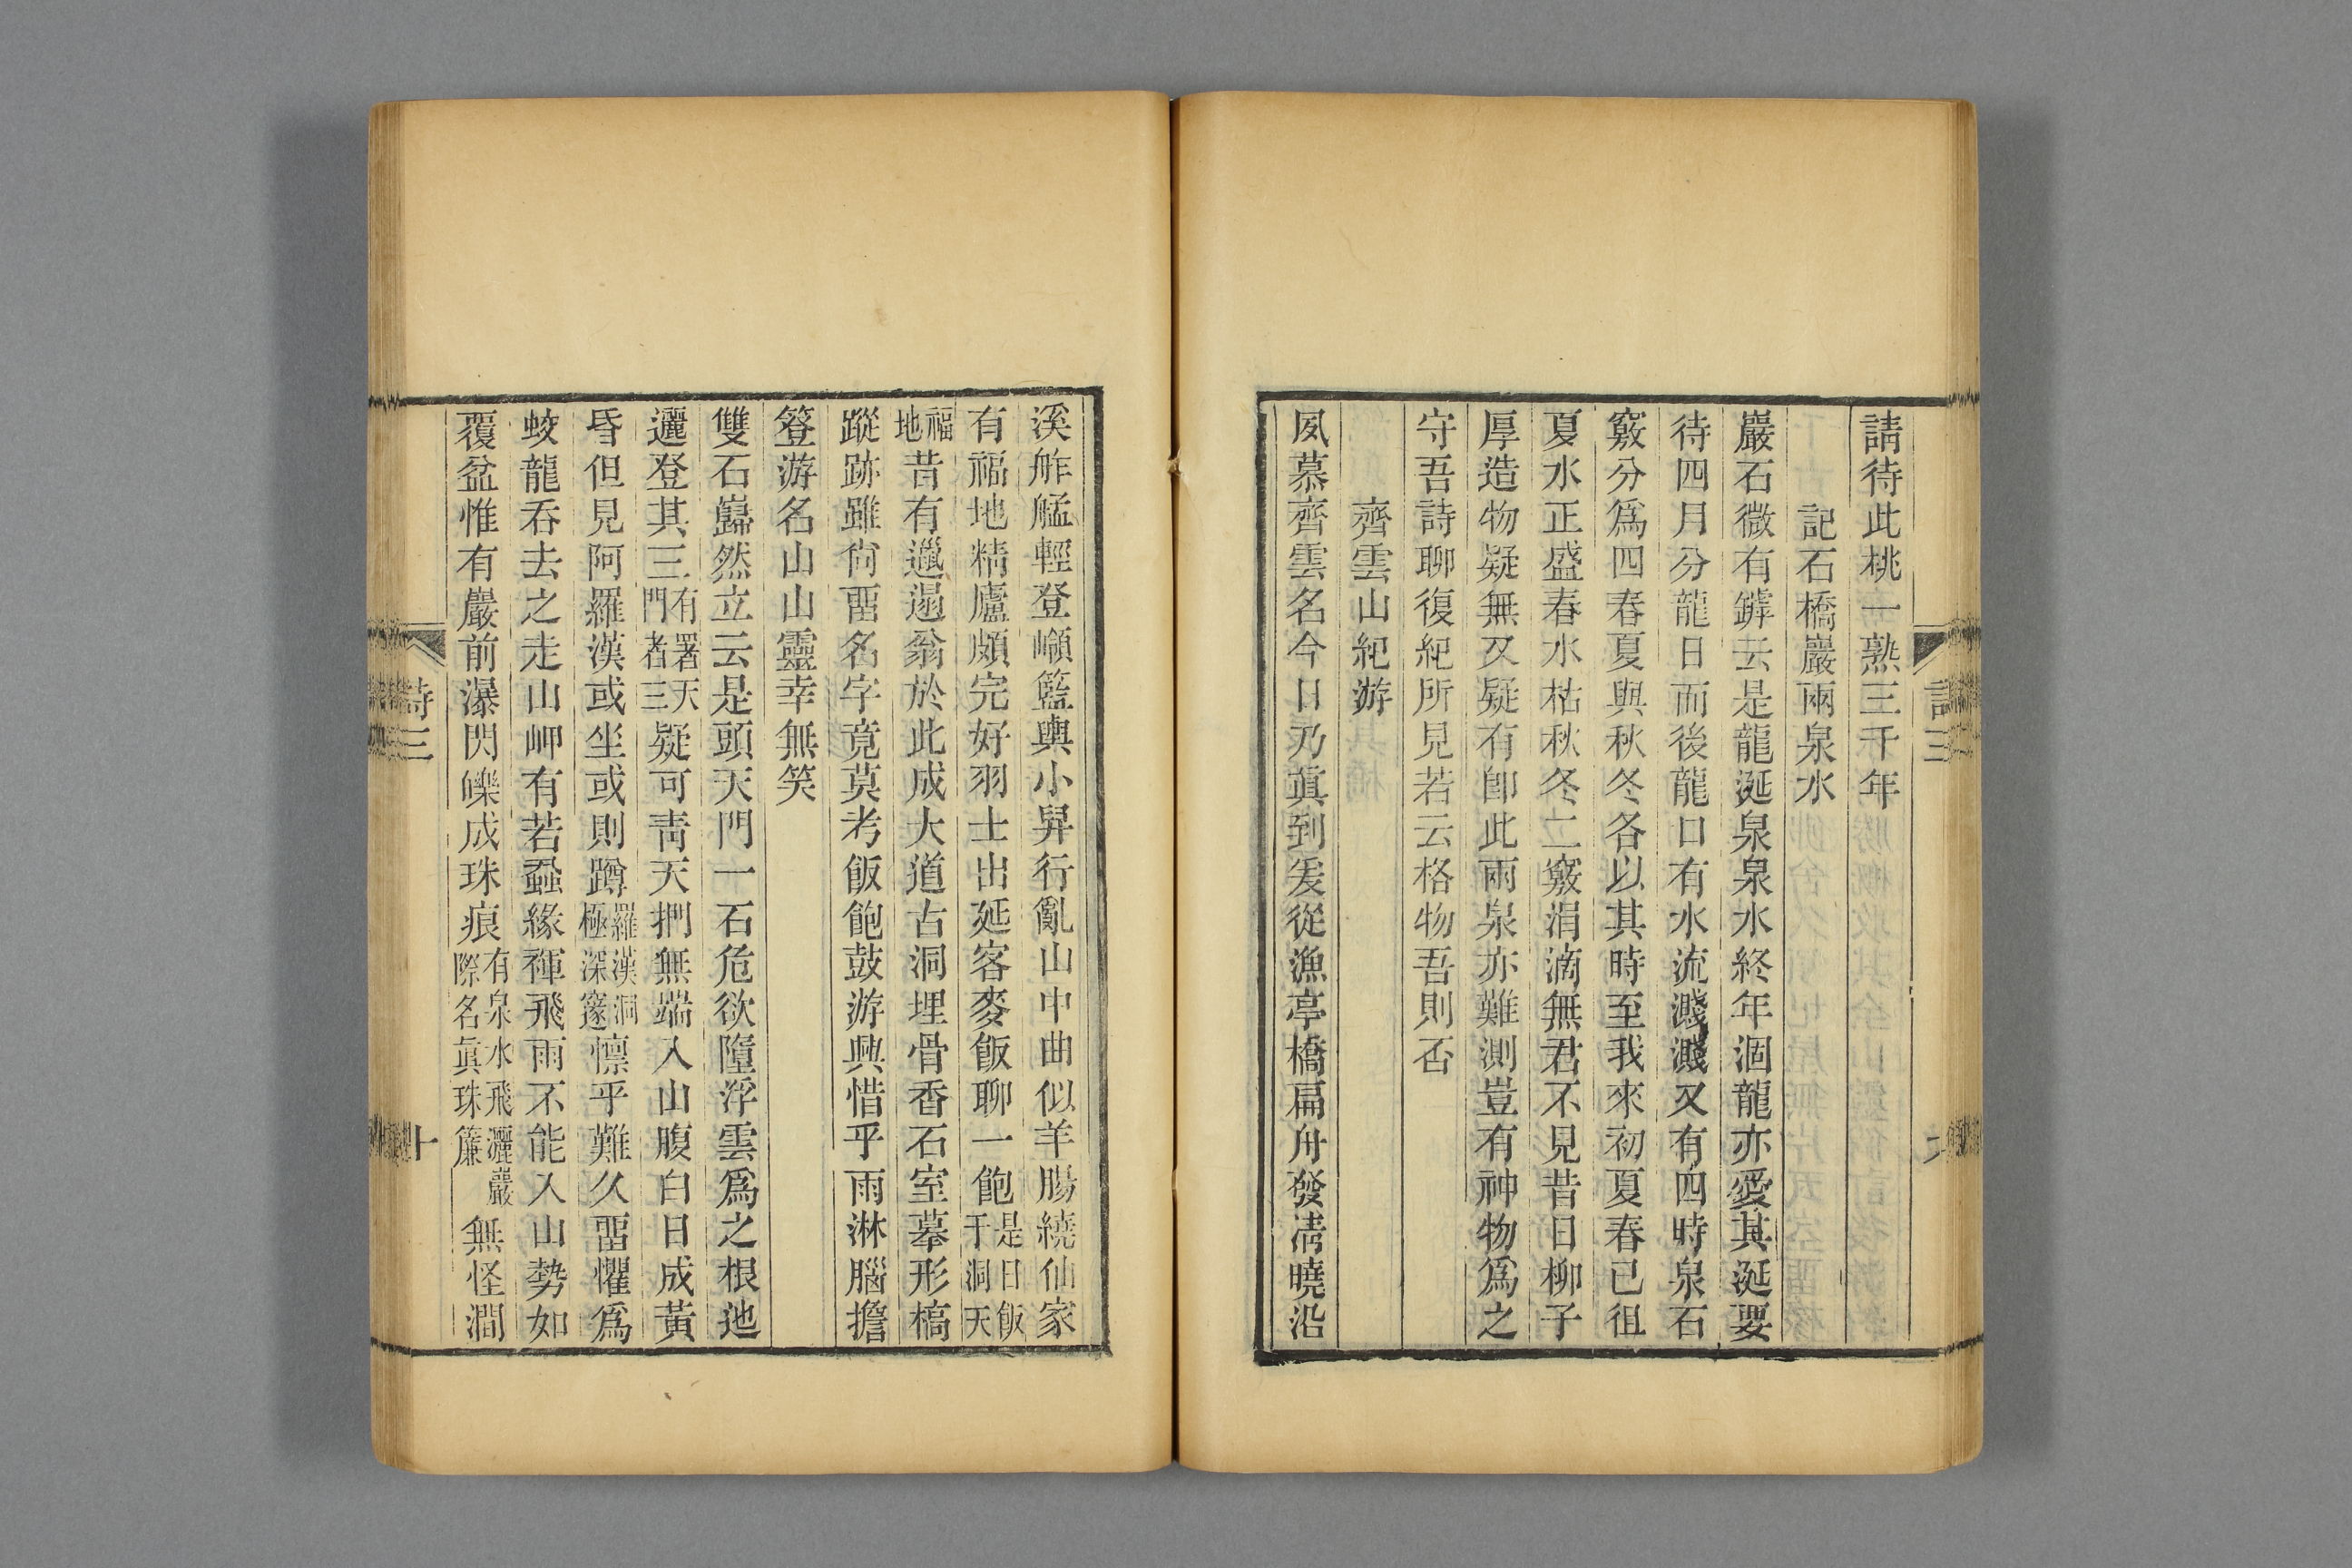 請待此桃一熟三千年
記石橋巖兩泉水
巖石微有罅云是龍涎泉泉水終年涸龍亦愛其涎要
待四月分龍日而後龍口有水流濺濺又有四時泉石
竅分爲四春夏與秋冬各以其時至我來初夏春已徂
夏水正盛春水枯秋冬二竅涓滴無君不見昔日柳子
厚造物疑無又疑有卽此兩泉亦難測豈有神物爲之
守吾詩聊復紀所見若云格物吾則否
齊雲山紀游
夙慕齊雲名今日乃眞到爰從漁亭橋扁舟發淸曉沿
溪舴艋輕登巓籃輿小舁行亂山中曲似羊腸繞仙家
有福地精廬頗完好羽士出延客麥飯聊一飽是日飯于洞天
福地昔有邋遢翁於此成大道古洞埋骨香石室摹形槁
蹤跡雖尙畱名字竟莫考飯飽鼓游興惜乎雨淋腦擔
簦游名山山靈幸無笑
雙石巋然立云是頭天門一石危欲墮浮雲爲之根迆
邐登其三有署天門者三疑可靑天捫無端入山腹白日成黃
昏但見阿羅漢或坐或則蹲羅漢洞極深邃懍乎難久畱懼爲
蛟龍吞去之走山岬有若蝨緣褌飛雨不能入山勢如
覆盆惟有巖前瀑閃皪成珠痕有泉水飛灑巖際名眞珠簾無怪澗
詩三
十